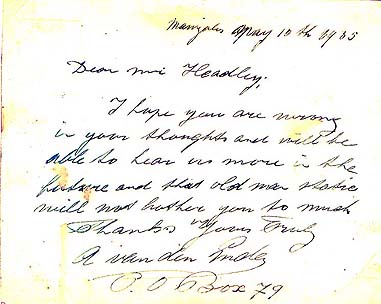 Manizales May 10th 1935
Dear Mr Headley;
I hope you are wrong
in your thoughts and will be
able to hear us more in the
future and that old man static
will not bother you to much
Thanks Yours Truly
A van den Enden
P.O Box 79